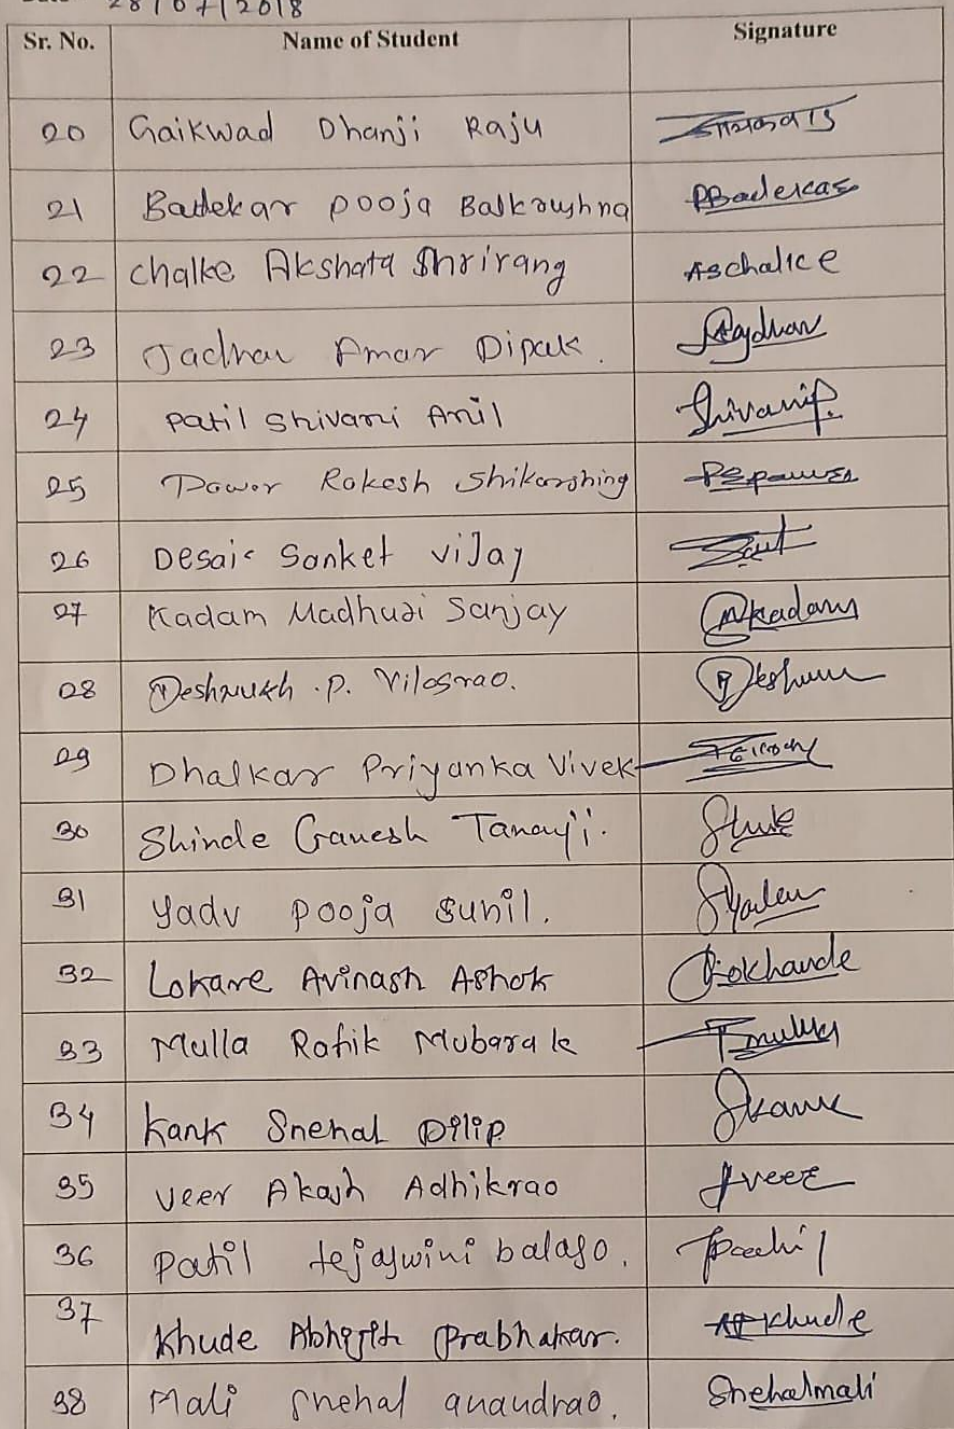 28/07/2018
Sr. No. Name of Student Signature
20 Gaikwad Dhanji Raju गायकवाड
21 Badekar Pooja Balkrushna PBadekar
22 Chalke Akshata Shrirang Aschalke
23 Jadhav Amar Dipak. Jadhav
24 Patil Shivani Anil ShivaniP.
25 Pawar Rakesh Shikarshing RSpawar
26 Desai Sanket viJay
27 Kadam Madhuri Sanjay Mkadam
28 Deshmukh .P. Vilasrao. Deshmu
29 Dhalkar Priyanka Vivek
30 Shinde Ganesh Tanaji.
31 Yadv Pooja Sunil.
32 Lokare Avinash Ashok Lokhande
33 Mulla Rafik Mubarak
34 Kank Snehal Dilip Skank
35 Veer Akash Adhikrao Aveer
36 Patil tejaswini balaso. Tpatil
37 Khude Abhijith Prabhakar. APKhude
38 Mali Snehal anandrao. Snehalmali